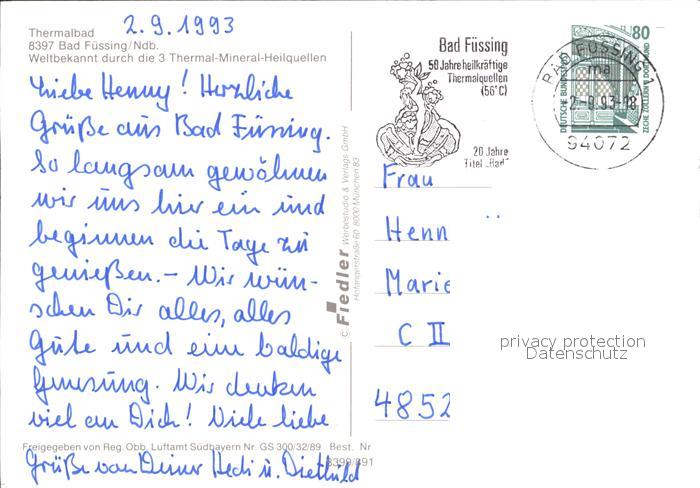 2.9.1993
Thermalbad
8397 Bad Füssing/Ndb.
Weltbekannt durch die 3 Thermal-Mineral-Heilquellen
Liebe Henny! Herzliche
Grüße aus Bad Füssing.
So langsam gewöhnen
wir uns hier ein und
beginnen die Tage zu
genießen.- Wir wün-
schen Dir alles, alles
Gute und eine baldige
Genesung. Wir denken
viel an Dich! Viele liebe
Freigegeben von Reg. Obb. Luftamt Südbayern Nr. GS 300/32/89 Best. Nr
Grüße von Deiner Hedi u. Diethild
© Fiedler Werbestudio & Verlags GmbH
Hofangerstraße 60 8000 München 83
Bad Füssing
50 Jahre heilkräftige
Thermalquellen
(56°C)
20 Jahre
Titel „Bad"
BAD FÜSSING 1
ma
2.-9.93-18
94072
80
DEUTSCHE BUNDESPOST
ZECHE ZOLLERN II DORTMUND
Frau
Henn
Marie
C II
4852
privacy protection
Datenschutz